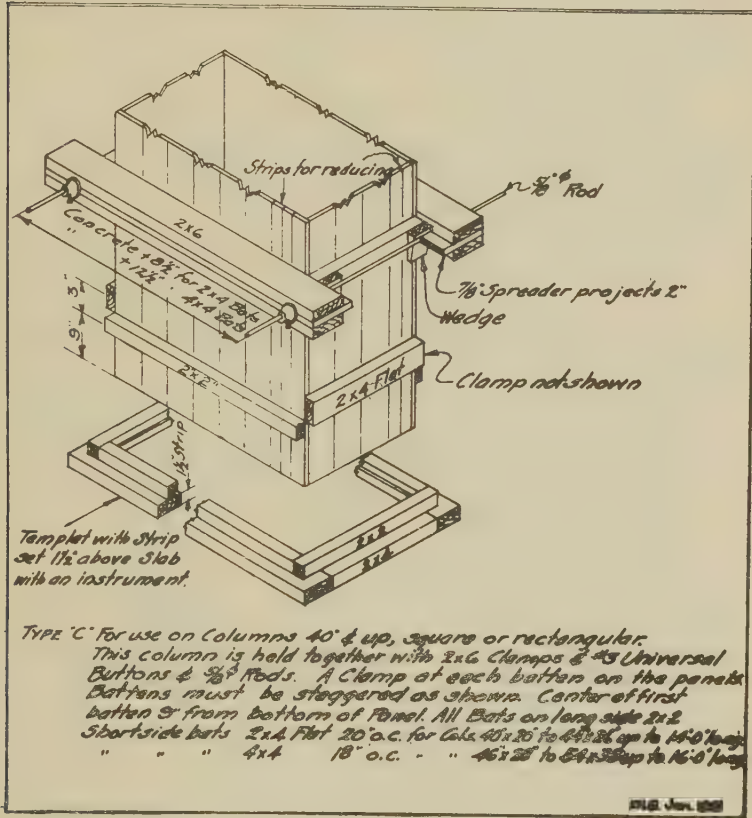 Strips for reducing
5/8" ϕ Rod
2x6
Concrete + 8½" for 2x4 Bats
+ 12½" " 4x4 Bats
7/8" Spreader projects 2"
Wedge
3"
9"
2x2"
2x4 Flat
Clamp not shown
1½" Strip
2x2
2x4
Templet with Strip
set 1½" above Slab
with an instrument.
TYPE "C" For use on Columns 40" & up, square or rectangular.
This column is held together with 2x6 Clamps & #3 Universal
Buttons & 5/8" ϕ Rods. A Clamp at each batten on the panels
Battens must be staggered as shown. Center of first
batten 9" from bottom of Panel. All Bats on long side 2x2
Short side bats 2x4 Flat 20" o.c. for Cols. up to 14'0" long
" " " 4x4 18" o.c. - " up to 16'0" long